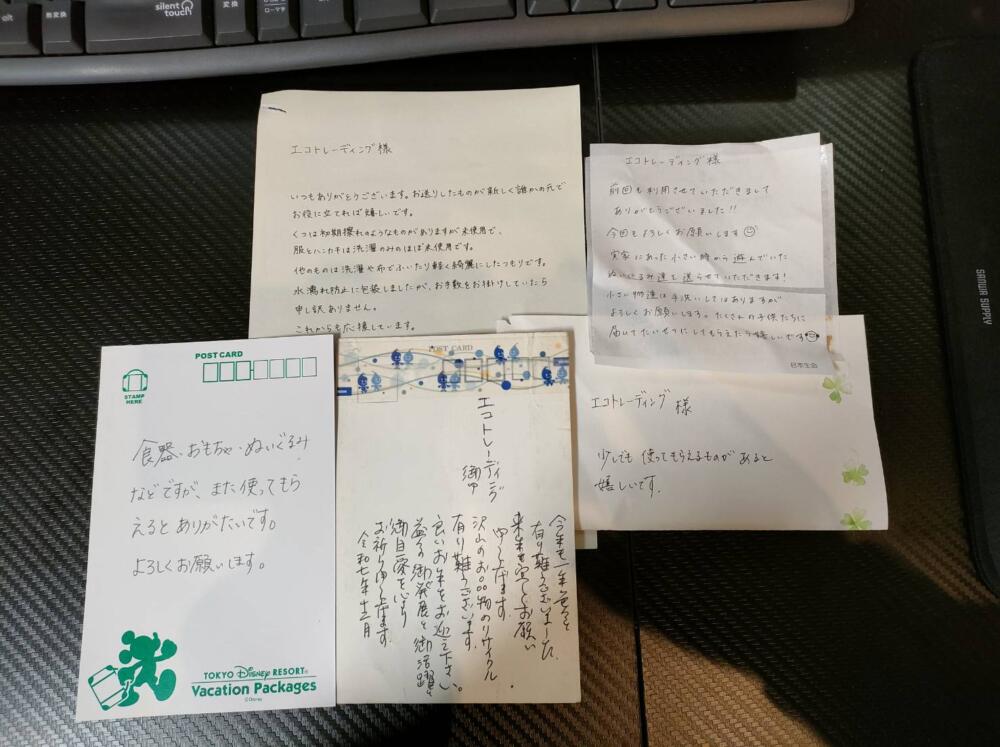 alt
無変換
silent touch
変換
ローマ字
エコトレーディング様
いつもありがとうございます。お送りしたものが新しく誰かの元で
お役に立てれば嬉しいです。
くつは初期擦れのようなものがありますが未使用で、
服とハンカチは洗濯のみのほぼ未使用です。
他のものは洗濯や布でふいたり軽く綺麗にしたつもりです。
水濡れ防止に包装しましたが、お手数をお掛けしていたら
申し訳ありません。
これからも応援しています。
エコトレーディング様
前回も利用させていただきまして
ありがとうございました!!
今回もよろしくお願いします
実家にあった小さい時から遊んでいた
ぬいぐるみ達を送らせていただきます!
小さい物達は手洗いしてはありますが
よろしくお願いします。たくさんの子供たちに
届いてたいせつにしてもらえたら嬉しいです
日本生命
エコトレーディング 様
少しでも使ってもらえるものがあると
嬉しいです.
POST CARD
STAMP HERE
食器、おもちゃ・ぬいぐるみ
などですが、また使ってもら
えるとありがたいです。
よろしくお願いします。
TOKYO Disney RESORT®
Vacation Packages
©Disney
POST CARD
エコトレーディング
御中
今年も一年色々と
有り難うございました。
来年も宜しくお願い
申し上げます
沢山のお品物のリサイクル
有り難うございます.
良いお年をお迎え下さい。
益々の御発展と御活躍を
お祈り申し上げます
令和七年
SANWA SUPPLY